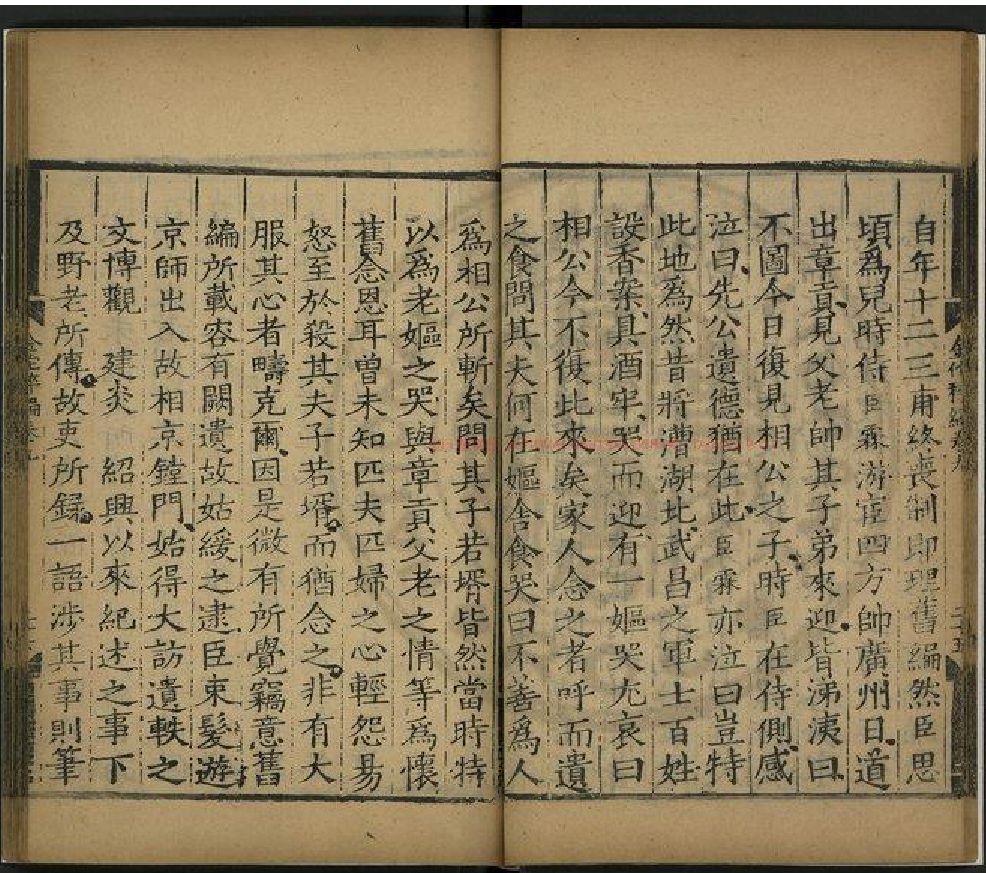 自年十二三甫終喪制即理舊編然臣思
頃爲兒時侍臣霖游宦四方帥廣州日道
出章貢見父老帥其子弟來迎皆涕洟曰
不圖今日復見相公之子時臣在侍側感
泣曰先公遺德猶在此臣霖亦泣曰豈特
此地爲然昔將漕湖北武昌之軍士百姓
設香案具酒牢哭而迎有一嫗哭尤哀曰
相公今不復此來矣家人念之者呼而遺
之食問其夫何在嫗舍食哭曰不善爲人
爲相公所斬矣問其子若壻皆然當時特
以爲老嫗之哭與章貢父老之情等爲懷
舊念恩耳曾未知匹夫匹婦之心輕怨易
怒至於殺其夫子若壻而猶念之非有大
服其心者疇克爾因是微有所覺竊意舊
編所載容有闕遺故姑緩之逮臣束髮遊
京師出入故相京鏜門始得大訪遺軼之
文博觀 建炎 紹興以來紀述之事下
及野老所傳故吏所錄一語涉其事則筆